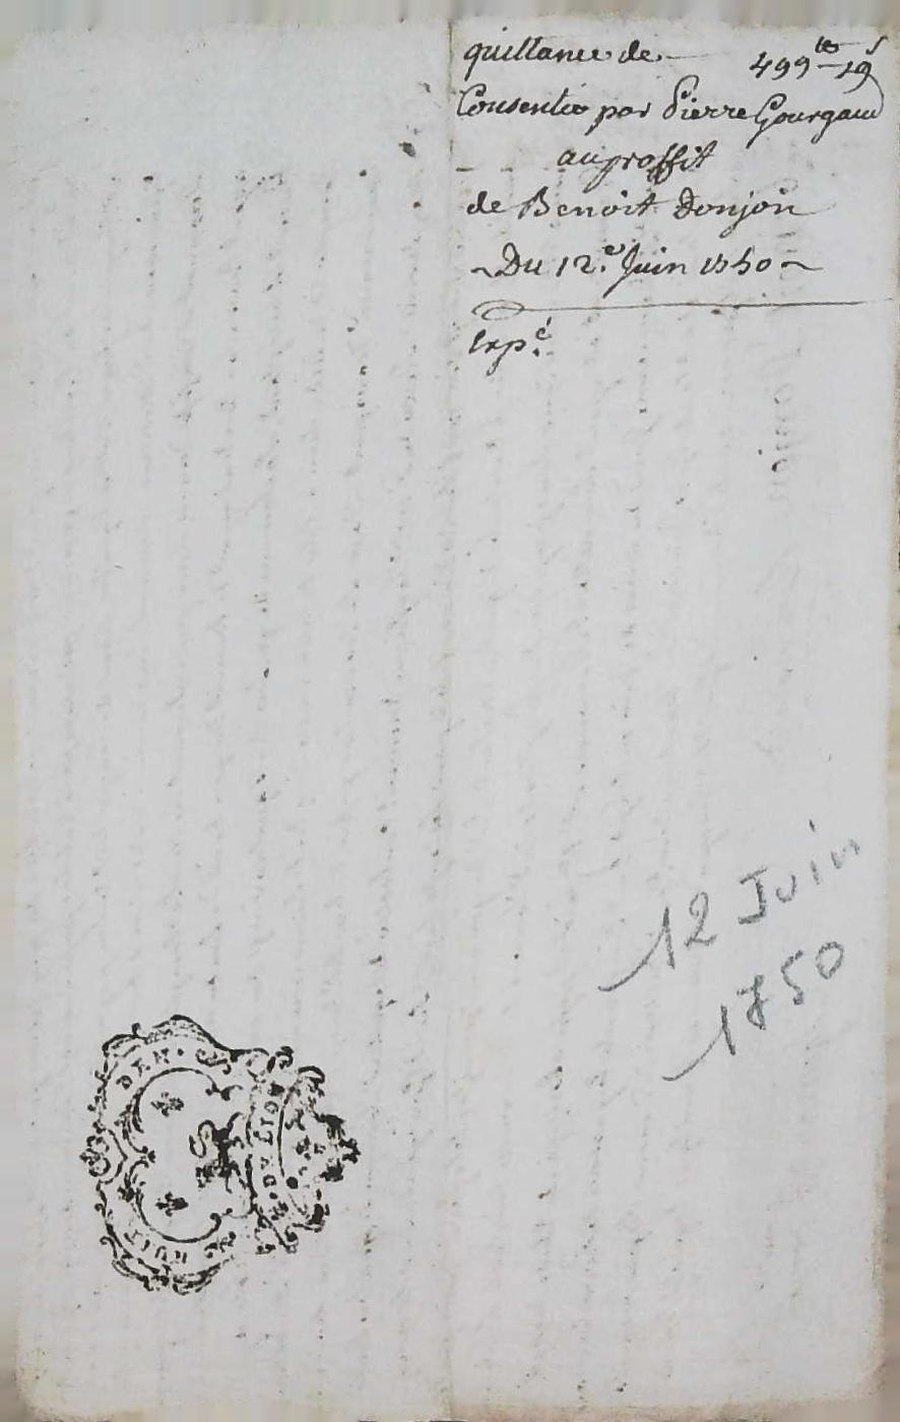 quittance de — 499ᵗᵗ — 19ˢ
Consentie par Pierre Gourgaud
au proffit
de Benoit Donjon
~ Du 12.ᵉ Juin 1750 ~
Exp.é
12 Juin
1750
HUIT DEN.